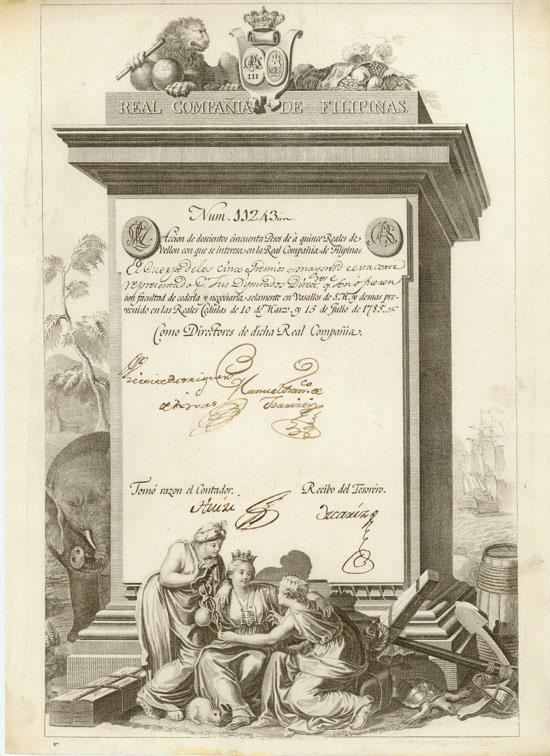 REAL COMPAÑIA DE FILIPINAS.
III
Num. 11243
Accion de doscientos cincuenta Pesos de à quince Reales de
Vellon con que se interesa en la Real Compañia de Filipinas
el Cuerpo de los cinco Gremios mayores de esta Corte
representado p. sus Diputados Direct. q. son o fueren
con facultad de cederla y negociarla solamente en Vasallos de S.M. y demas pre-
venido en las Reales Cedulas de 10 de Marzo, y 15 de Julio de 1785.
Como Directores de dicha Real Compañia.
Manuel Fran.co de
Tomó razon el Contador.
Recibo del Tesorero.